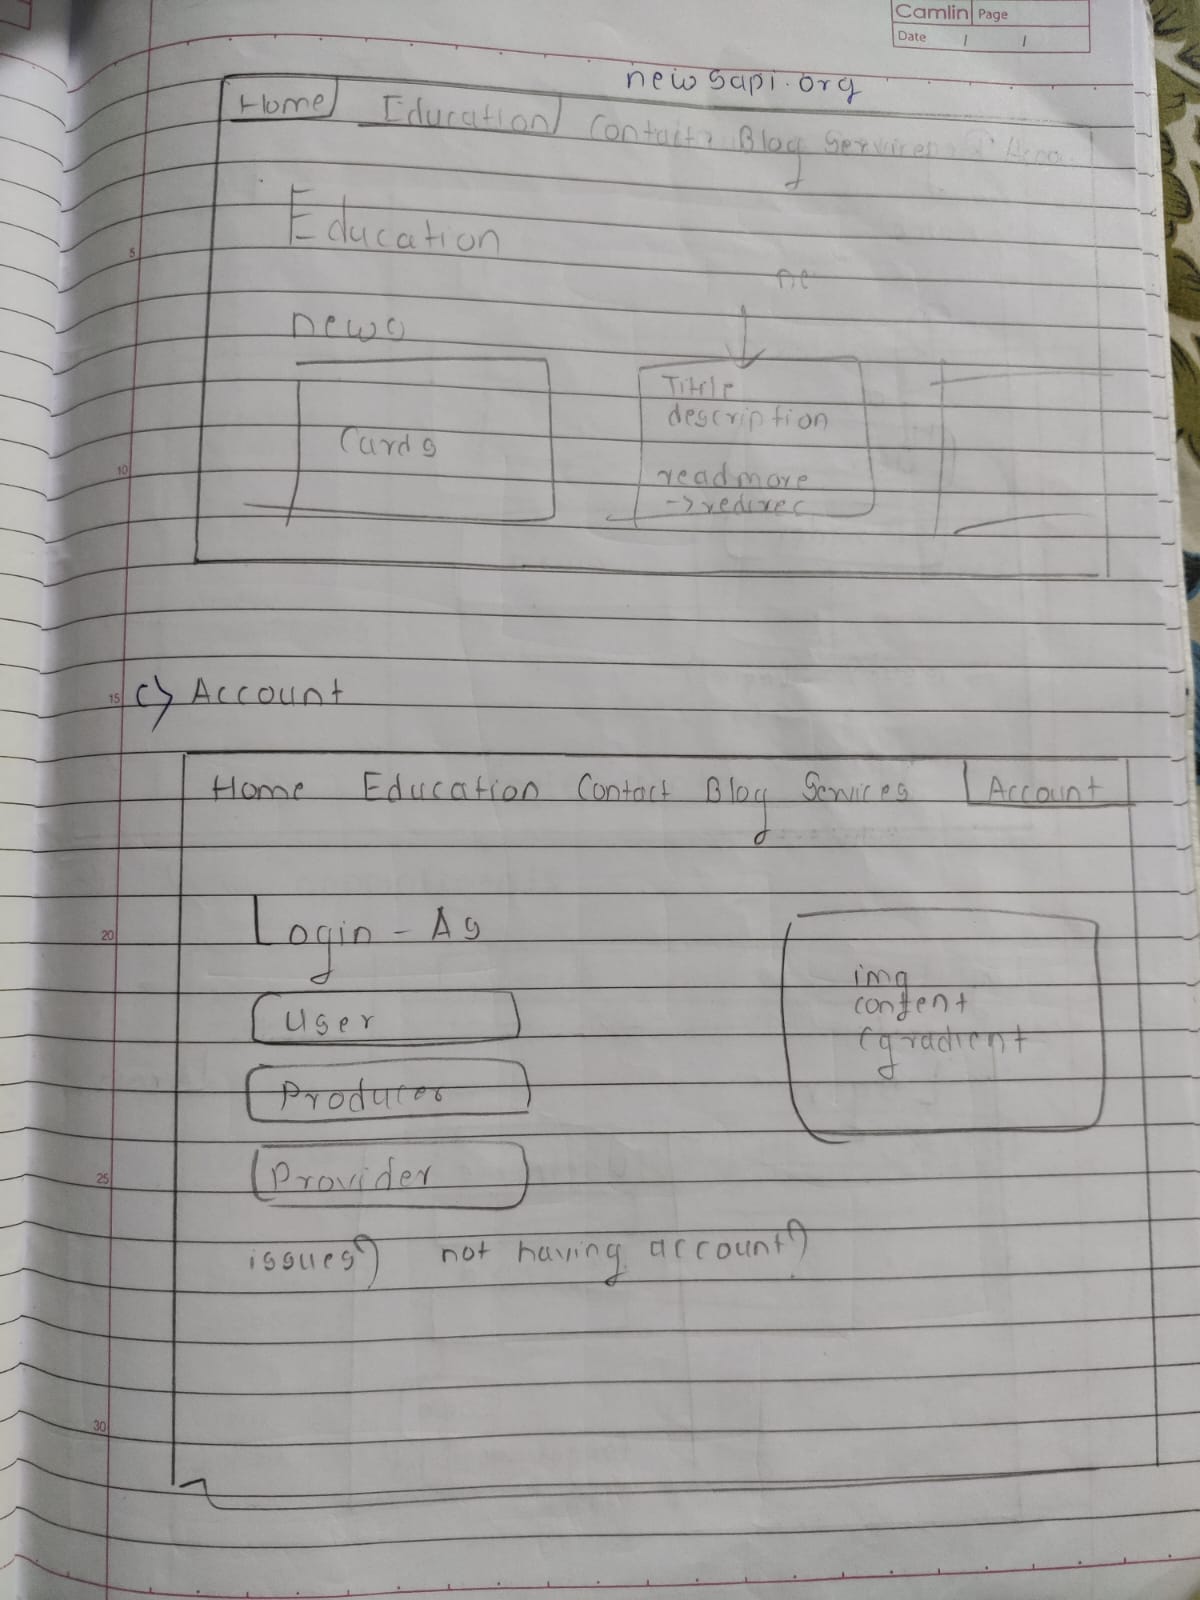 Camlin Page
Date / /
newsapi.org
Home Education Contact Blog Services
Education
ne
news
Cards
Title
description
readmore
-> redirec
c) Account
Home Education Contact Blog Services Account
Login - As
User
Producer
Provider
img
content
(gradient
issues? not having account?
5
10
15
20
25
30